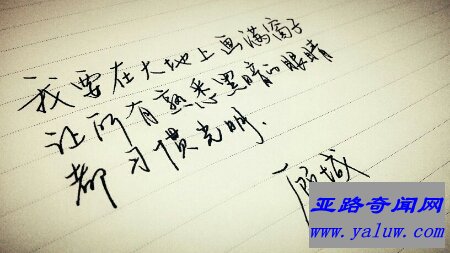 我要在大地上画满窗子
让所有熟悉黑暗的眼睛
都习惯光明.
顾城
亚路奇闻网
www.yaluw.com